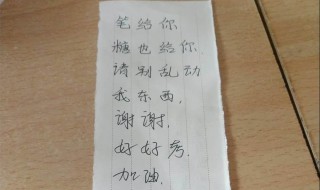 笔给你
糖也给你
请别乱动
我东西,
谢谢,
好好考.
加油.